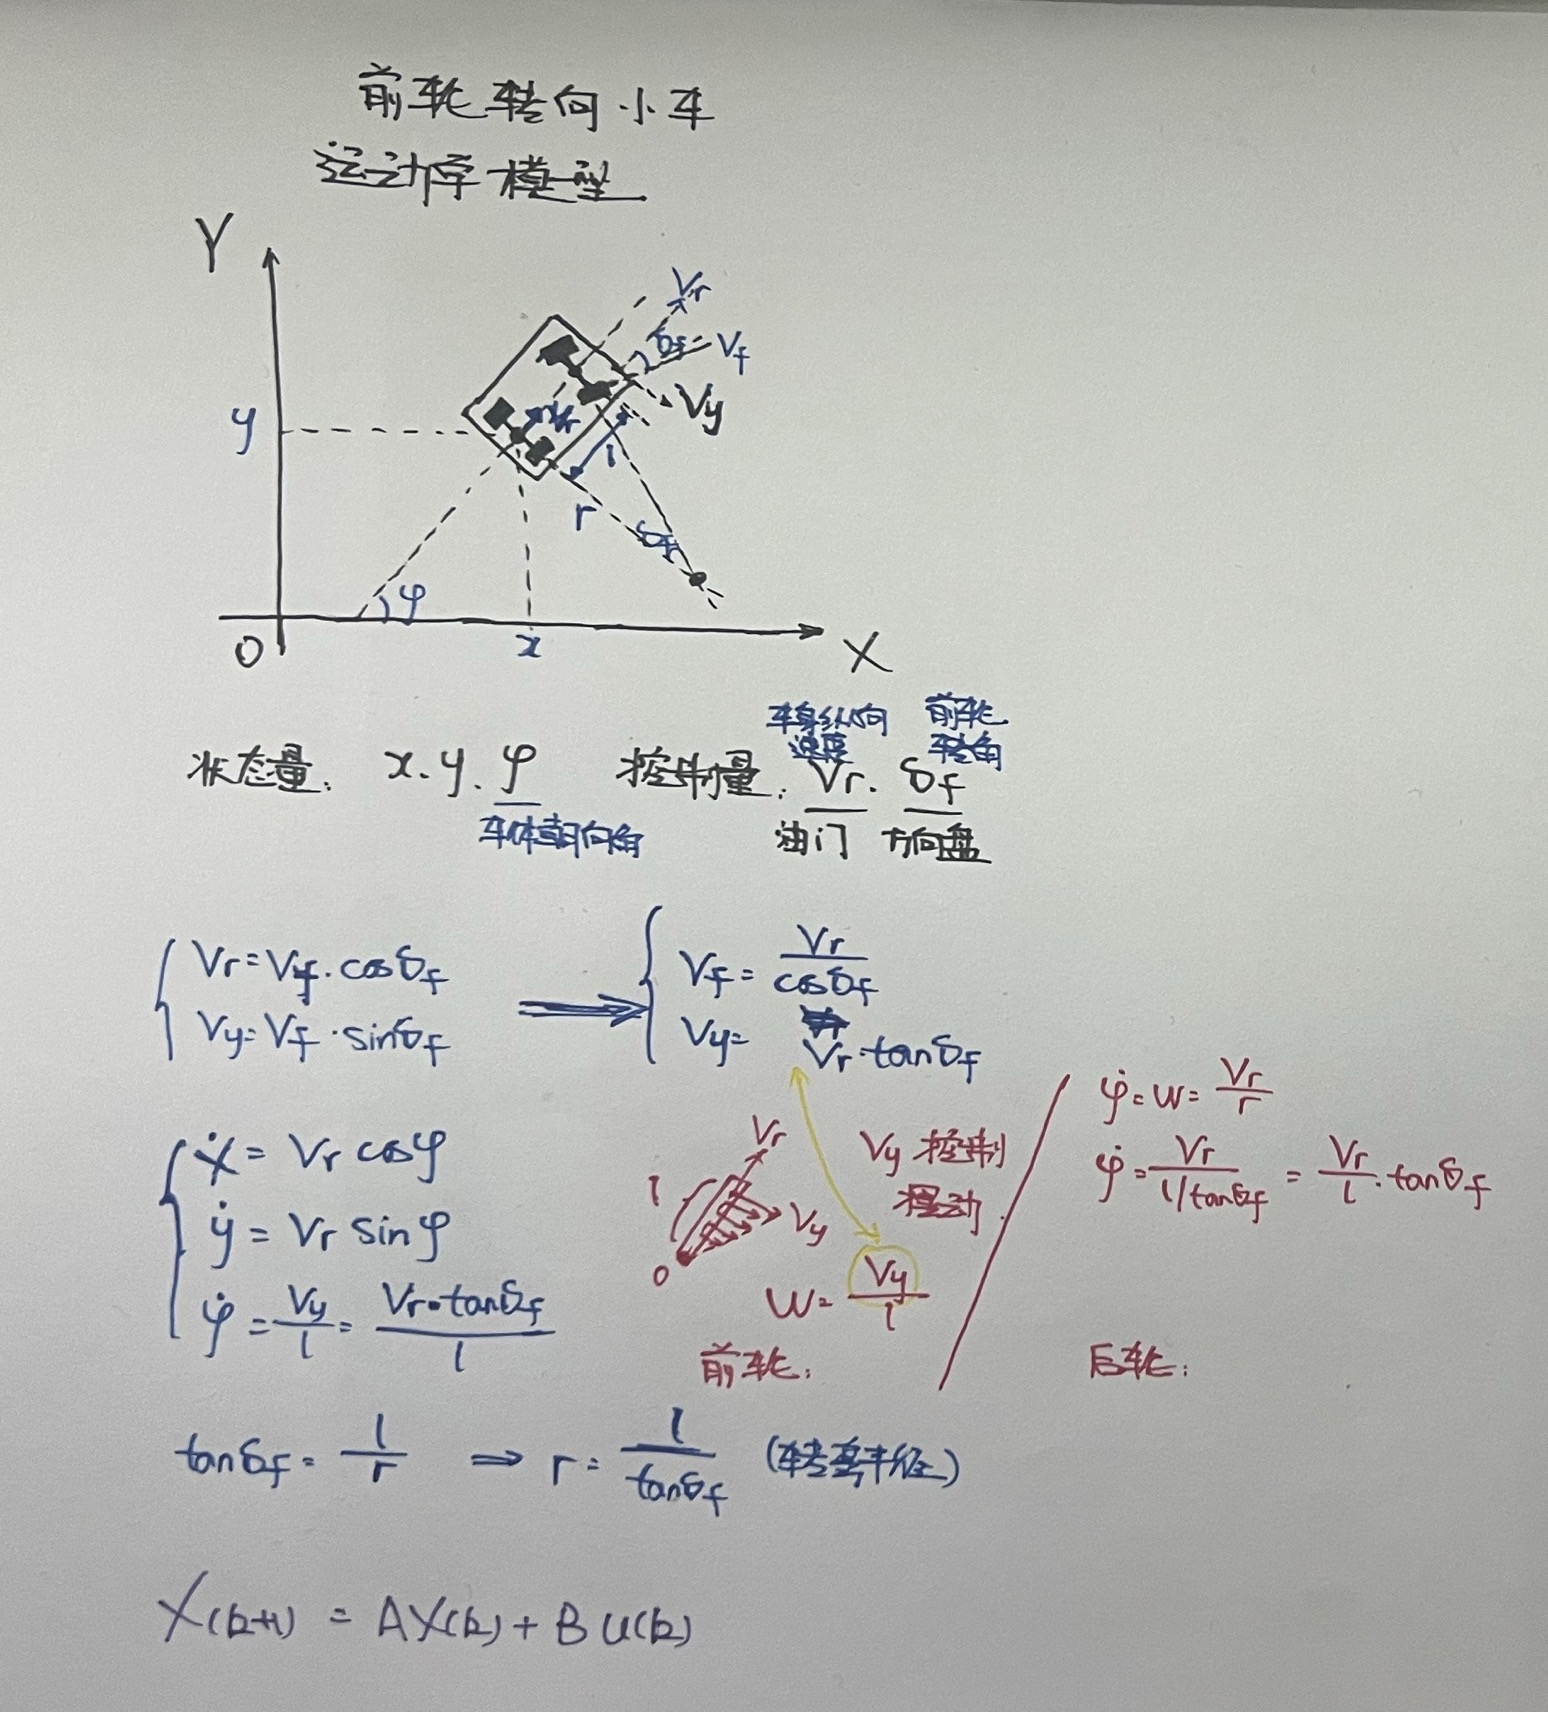 前轮转向小车
运动学模型
Y
Vr
δf
Vf
Vy
Vr
y
l
r
δf
φ
O
x
X
车身纵向 前轮
速度 转角
状态量: x.y.φ 控制量: Vr. δf
车体朝向角 油门 方向盘
Vr=Vf·cosδf
Vy=Vf·sinδf
⟹
Vf=Vr/cosδf
Vy=Vr·tanδf
ẋ=Vr cosφ
ẏ=Vr sinφ
φ̇=Vy/l=Vr·tanδf/l
Vr
l
Vy
O
Vy控制
摆动.
W=Vy/l
前轮:
φ̇=W=Vr/r
φ̇=Vr/l/tanδf=Vr/l·tanδf
后轮:
tanδf=l/r ⇒ r=l/tanδf (转弯半径)
X(k+1)=AX(k)+BU(k)